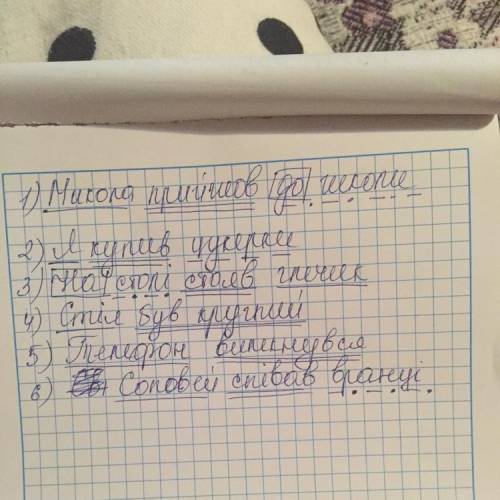 1) Микола прийшов [до] школи
2) Я купив цукерки
3) [На] столі стояв глечик
4) Стіл був круглий
5) Телефон вимкнувся
6) Соловей співав вранці